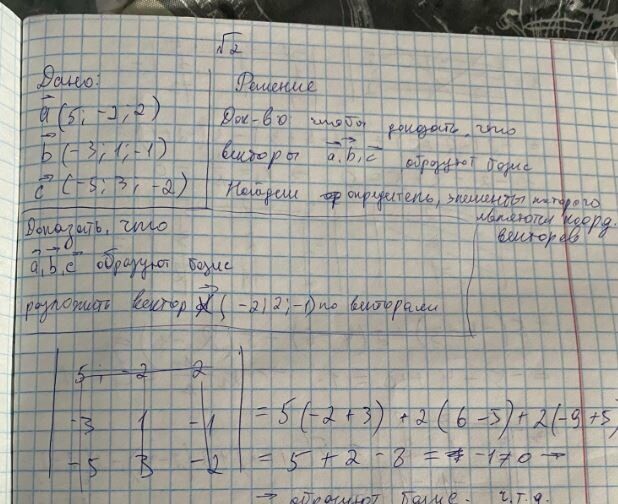 √2
Дано:
a (5; -2; 2)
b (-3; 1; -1)
c (-5; 3; -2)
Решение
Док-во чтобы доказать, что
векторы a, b, c образуют базис
Найдем определитель, элементы которого
являются коорд.
векторов
Доказать, что
a, b, c образуют базис
разложить вектор d (-2; 2; -1) по векторами
5; -2 2
-3 1 -1
-5 3 -2
= 5(-2+3) + 2(6-5) + 2(-9+5)
= 5 + 2 - 8 = -1 ≠ 0 →
→ образуют базис. ч.т.д.